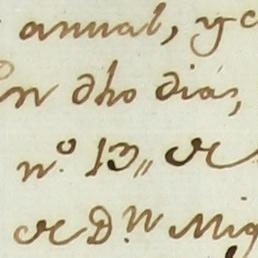 anual, y c
En dho dias,
n.º 13,, de
de D.n Mig